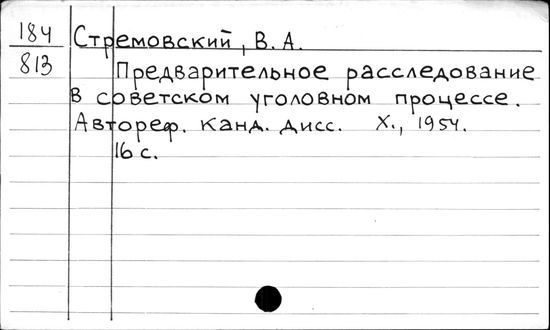 184 Стремовский, В. А.
813 Предварительное расследование
в советском уголовном процессе.
Автореф. канд. дисс. Х., 1954.
16 с.